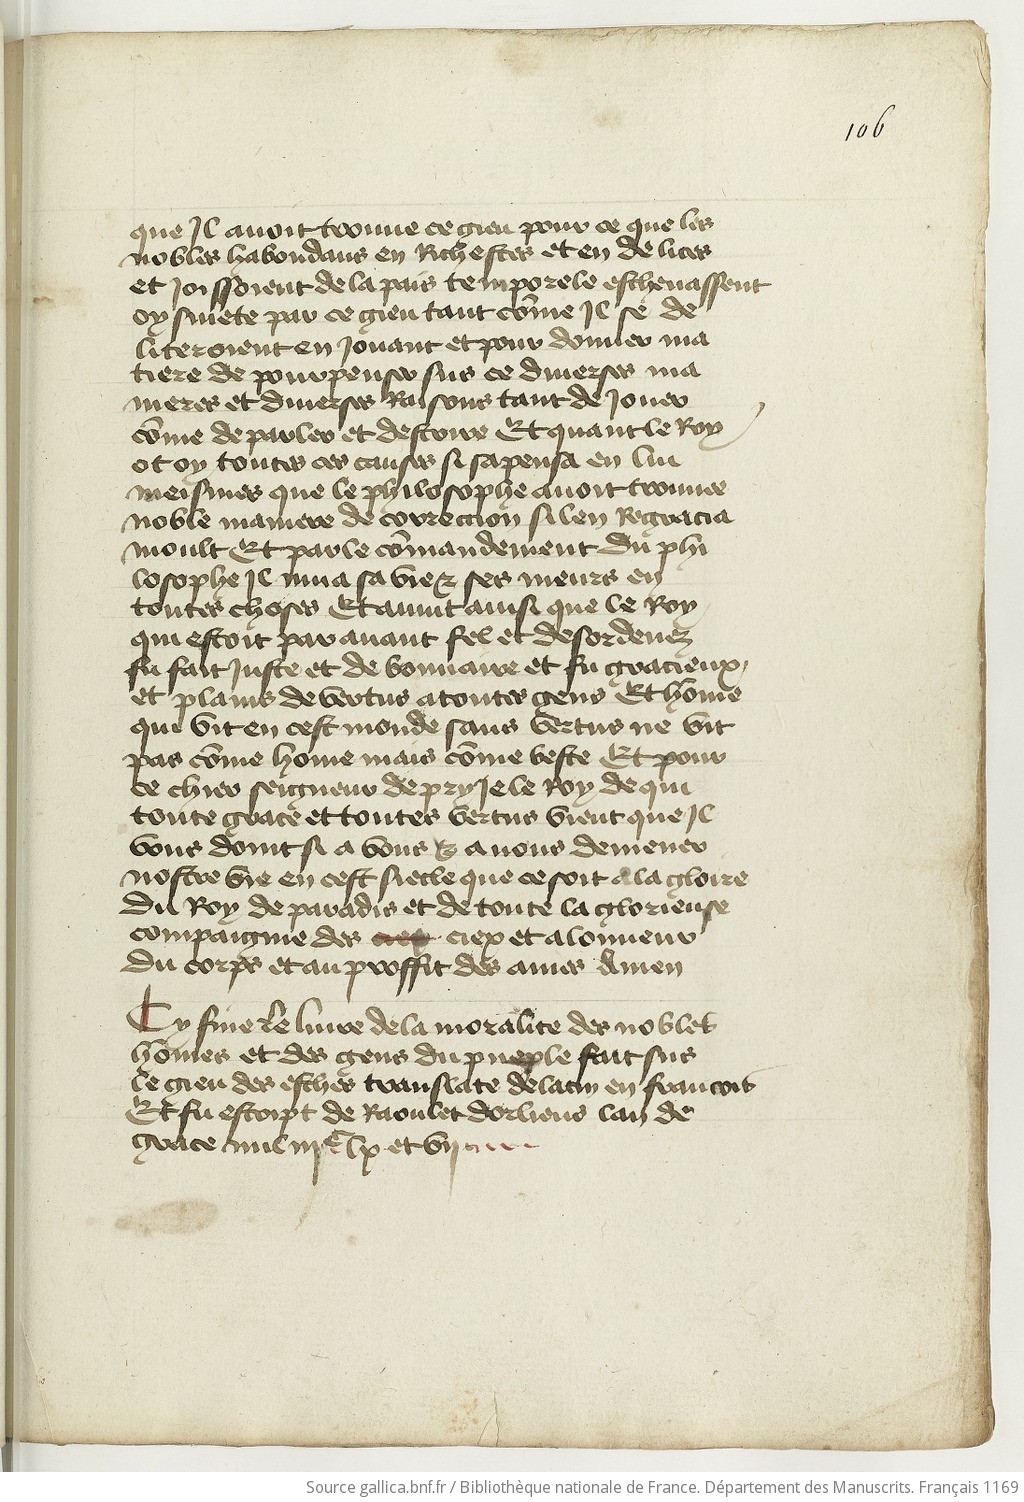 106
que Jl auoit trouue ce gieu pour ce que les
nobles habondans en Richesses et en delices
et Joissoient de la pais temporele escheuassent
oysiuete par ce gieu tant cōme Jl se de
literoient en Jouant et pour donner ma
tiere de pourpenser sus ce diuerses ma
nieres et diuerses Raisons tant de Jouer
cōme de parler et descrire Et quant le Roy
ot oy toutes ces causes si sapensa en lui
meismes que le philosophe auoit trouuee
noble maniere de correction si len Regracia
moult Et par le cōmandement du phi
losophe Jl mua sa vie & ses meurs en
toutes choses Et auint ainsi que le Roy
qui estoit par auant fel et desordenez
fu fait Juste et de bonnaire et fu gracieux
et plains de vertus a toutes gens Et hōme
qui vit en cest monde sans vertus ne vit
pas cōme home mais cōme beste Et pour
ce chier seigneur depry Je le Roy de qui
toute grace et toutes vertus vient que Jl
vous doint si a vous & a nous demener
nostre vie en cest siecle que ce soit a la gloire
du Roy de paradis et de toute la glorieuse
compaignie des ciex et a lonneur
du corps et au proffit des ames Amen
Cy fine le liure de la moralite des nobles
hōmes et des gens du pueple fait sus
le gieu des esches translate de latin en francois
Et fu escript de Raoulet dorliens lan de
grace mil iijc lx et vij
Source gallica.bnf.fr / Bibliothèque nationale de France. Département des Manuscrits. Français 1169